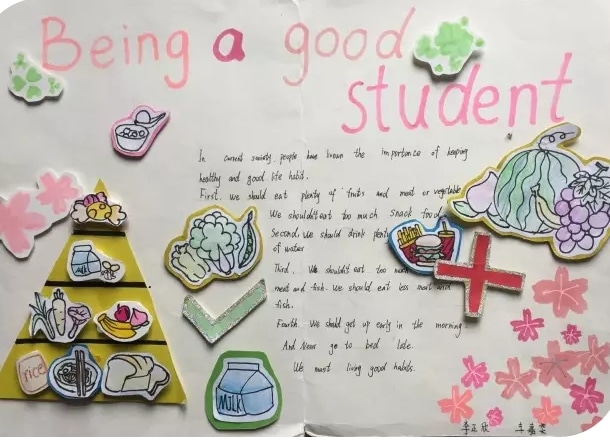 Being a good
student
In current society, people have known the importance of keeping
healthy and good life habit.
First, we should eat plenty of fruits and meat or vegetable
We shouldn't eat too much snack food
Second, We should drink plent
of water
Third, We shouldn't eat too much
meat and fish. We should eat less meat and
fish.
Fourth. We should get up early in the morning
And Never go to bed late.
We must living good habits.
milk
rice
MILK
李正欣